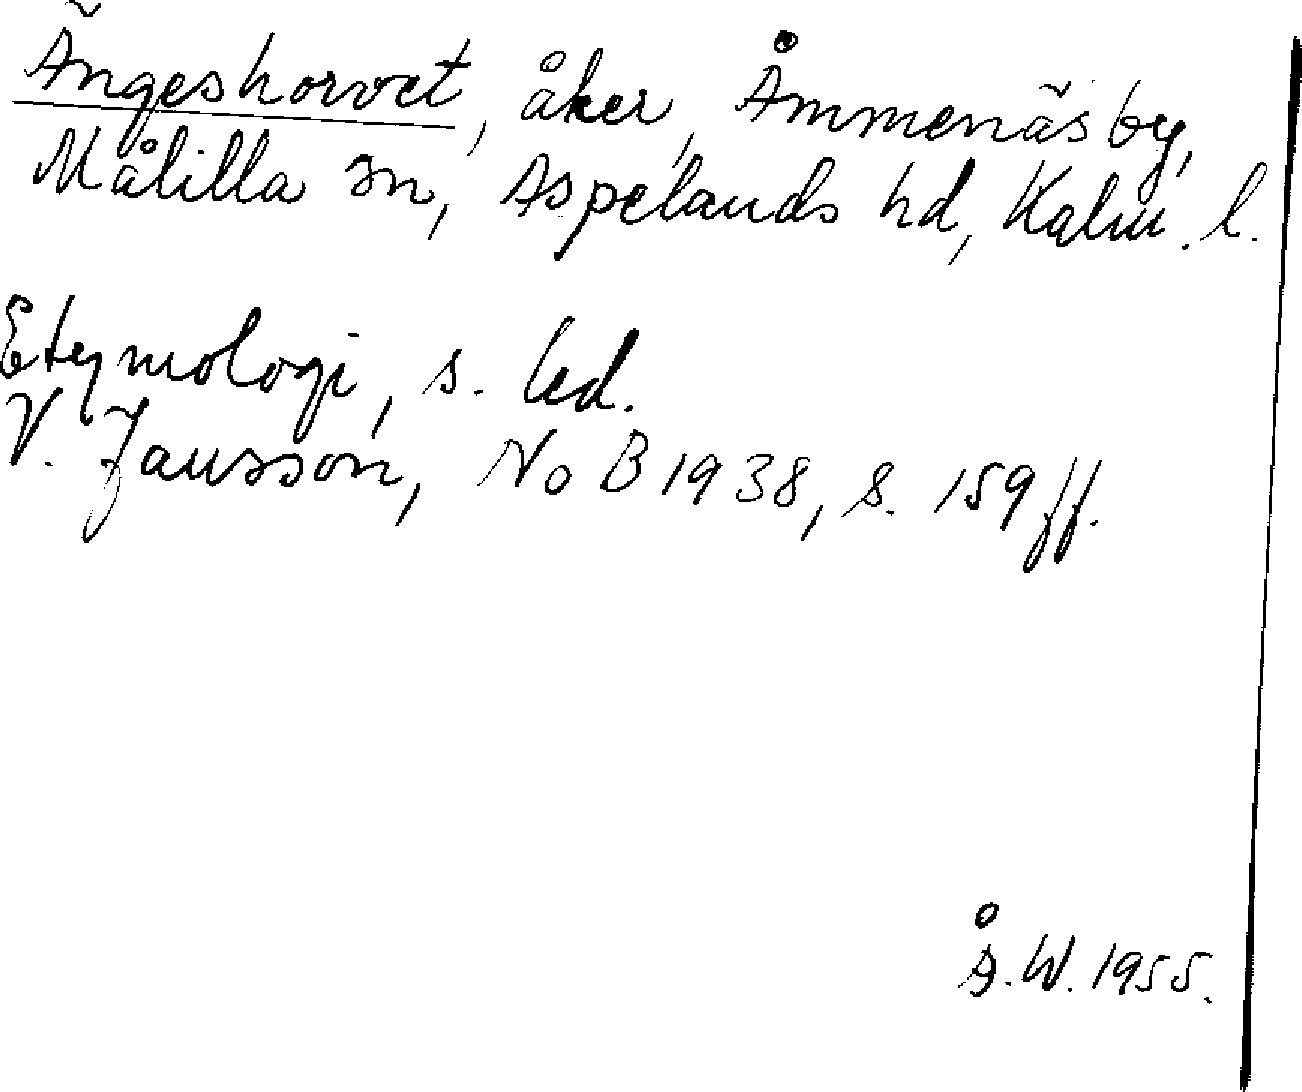 Ängeshorvet, åker, Åmmenäs by,
Målilla sn, Aspelands hd, Kalm. l.
Etymologi, s. led.
V. Jansson, NoB 1938, s. 159 ff.
Å.W. 1955.